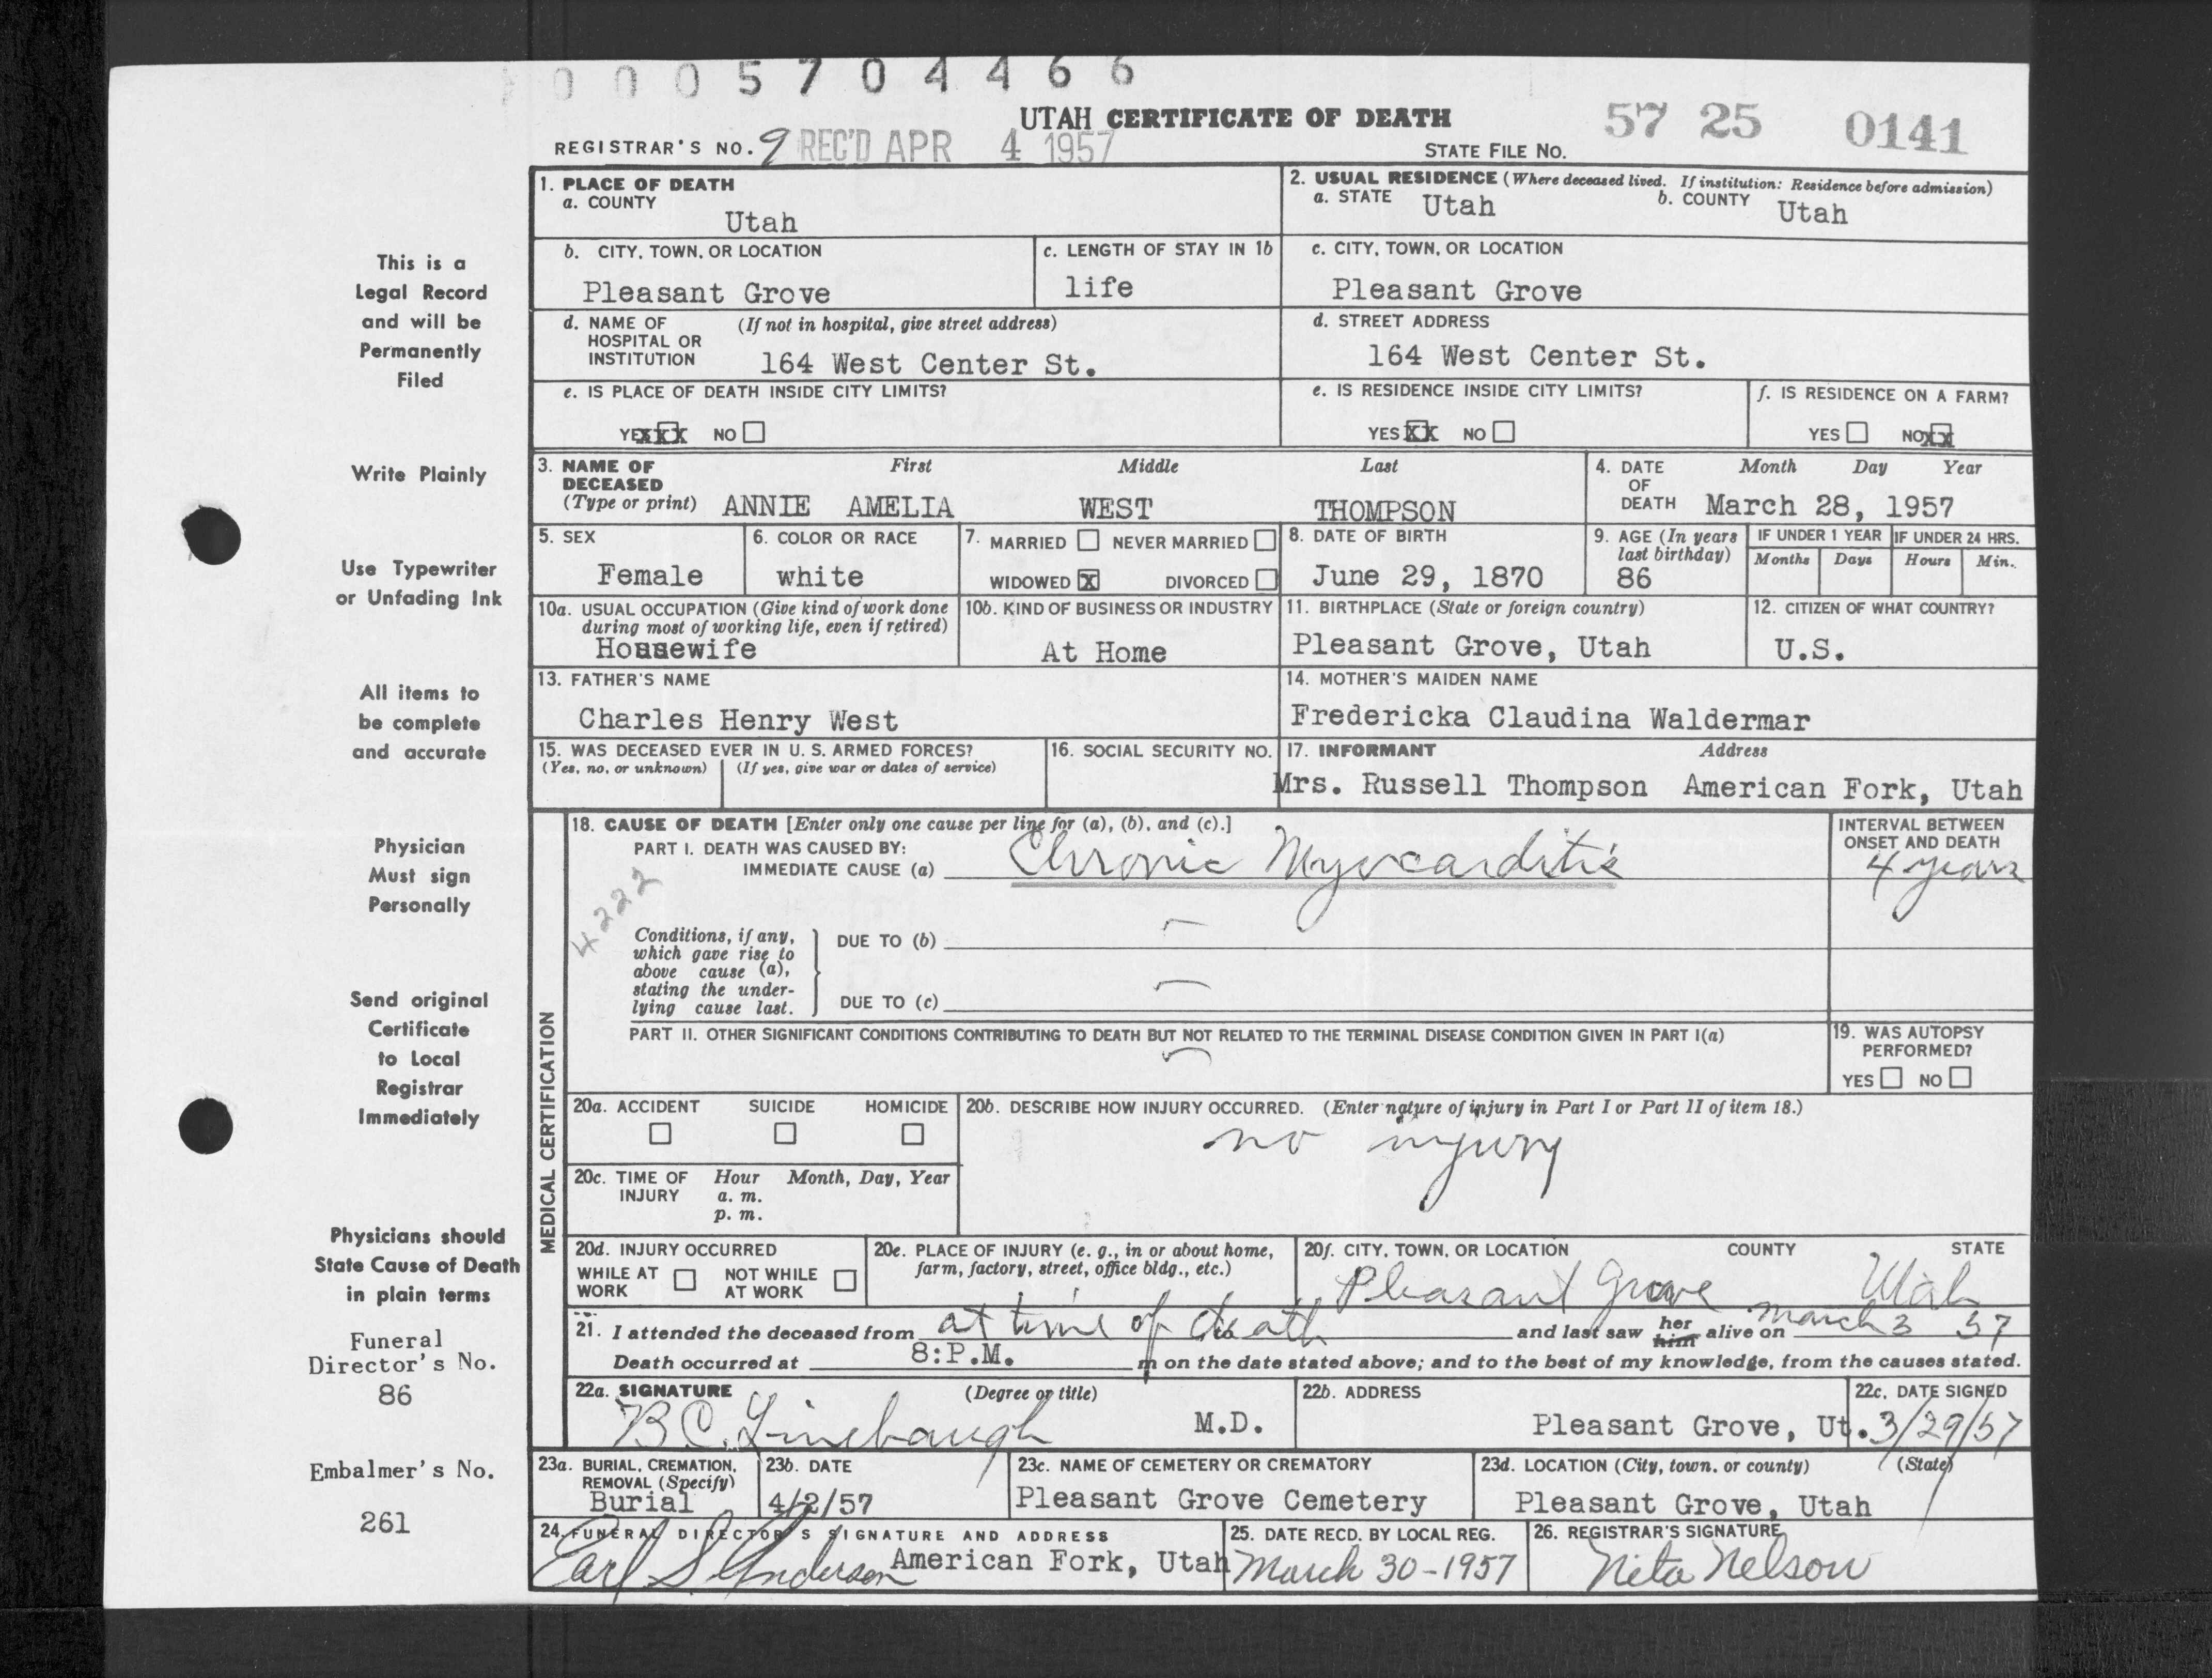 0 0 0 5 7 0 4 4 6 6
UTAH CERTIFICATE OF DEATH
57 25 0141
REGISTRAR'S NO. 9 REC'D APR 4 1957 STATE FILE NO.
1. PLACE OF DEATH
a. COUNTY
Utah
2. USUAL RESIDENCE (Where deceased lived. If institution: Residence before admission)
a. STATE Utah b. COUNTY Utah
b. CITY, TOWN, OR LOCATION
Pleasant Grove
c. LENGTH OF STAY IN 1b
life
c. CITY, TOWN, OR LOCATION
Pleasant Grove
d. NAME OF (If not in hospital, give street address)
HOSPITAL OR
INSTITUTION 164 West Center St.
d. STREET ADDRESS
164 West Center St.
e. IS PLACE OF DEATH INSIDE CITY LIMITS?
YES XXX NO
e. IS RESIDENCE INSIDE CITY LIMITS?
YES XX NO
f. IS RESIDENCE ON A FARM?
YES NO XX
3. NAME OF First Middle Last
DECEASED
(Type or print) ANNIE AMELIA WEST THOMPSON
4. DATE Month Day Year
OF
DEATH March 28, 1957
5. SEX
Female
6. COLOR OR RACE
white
7. MARRIED NEVER MARRIED
WIDOWED X DIVORCED
8. DATE OF BIRTH
June 29, 1870
9. AGE (In years
last birthday)
86
IF UNDER 1 YEAR
Months Days
IF UNDER 24 HRS.
Hours Min.
10a. USUAL OCCUPATION (Give kind of work done
during most of working life, even if retired)
Housewife
10b. KIND OF BUSINESS OR INDUSTRY
At Home
11. BIRTHPLACE (State or foreign country)
Pleasant Grove, Utah
12. CITIZEN OF WHAT COUNTRY?
U.S.
13. FATHER'S NAME
Charles Henry West
14. MOTHER'S MAIDEN NAME
Fredericka Claudina Waldermar
15. WAS DECEASED EVER IN U. S. ARMED FORCES?
(Yes, no, or unknown) (If yes, give war or dates of service)
16. SOCIAL SECURITY NO.
17. INFORMANT Address
Mrs. Russell Thompson American Fork, Utah
MEDICAL CERTIFICATION
18. CAUSE OF DEATH [Enter only one cause per line for (a), (b), and (c).]
PART I. DEATH WAS CAUSED BY:
IMMEDIATE CAUSE (a) Chronic Myocarditis
INTERVAL BETWEEN
ONSET AND DEATH
4 years
4222
Conditions, if any,
which gave rise to
above cause (a),
stating the under-
lying cause last.
DUE TO (b) —
DUE TO (c) —
PART II. OTHER SIGNIFICANT CONDITIONS CONTRIBUTING TO DEATH BUT NOT RELATED TO THE TERMINAL DISEASE CONDITION GIVEN IN PART I(a)
—
19. WAS AUTOPSY
PERFORMED?
YES NO
20a. ACCIDENT SUICIDE HOMICIDE
20b. DESCRIBE HOW INJURY OCCURRED. (Enter nature of injury in Part I or Part II of item 18.)
no injury
20c. TIME OF Hour Month, Day, Year
INJURY a. m.
p. m.
20d. INJURY OCCURRED
WHILE AT NOT WHILE
WORK AT WORK
20e. PLACE OF INJURY (e. g., in or about home,
farm, factory, street, office bldg., etc.)
20f. CITY, TOWN, OR LOCATION COUNTY STATE
Pleasant Grove Utah
21. I attended the deceased from at time of death and last saw her him alive on march 3 57
Death occurred at 8:P.M. m on the date stated above; and to the best of my knowledge, from the causes stated.
22a. SIGNATURE (Degree or title)
B C. Linebaugh M.D.
22b. ADDRESS
Pleasant Grove, Ut.
22c. DATE SIGNED
3/29/57
23a. BURIAL, CREMATION,
REMOVAL (Specify)
Burial
23b. DATE
4/2/57
23c. NAME OF CEMETERY OR CREMATORY
Pleasant Grove Cemetery
23d. LOCATION (City, town, or county) (State)
Pleasant Grove, Utah
24. FUNERAL DIRECTOR'S SIGNATURE AND ADDRESS
Earl S Anderson American Fork, Utah
25. DATE RECD. BY LOCAL REG.
March 30-1957
26. REGISTRAR'S SIGNATURE
Neta Nelson
This is a
Legal Record
and will be
Permanently
Filed
Write Plainly
Use Typewriter
or Unfading Ink
All items to
be complete
and accurate
Physician
Must sign
Personally
Send original
Certificate
to Local
Registrar
Immediately
Physicians should
State Cause of Death
in plain terms
Funeral
Director's No.
86
Embalmer's No.
261